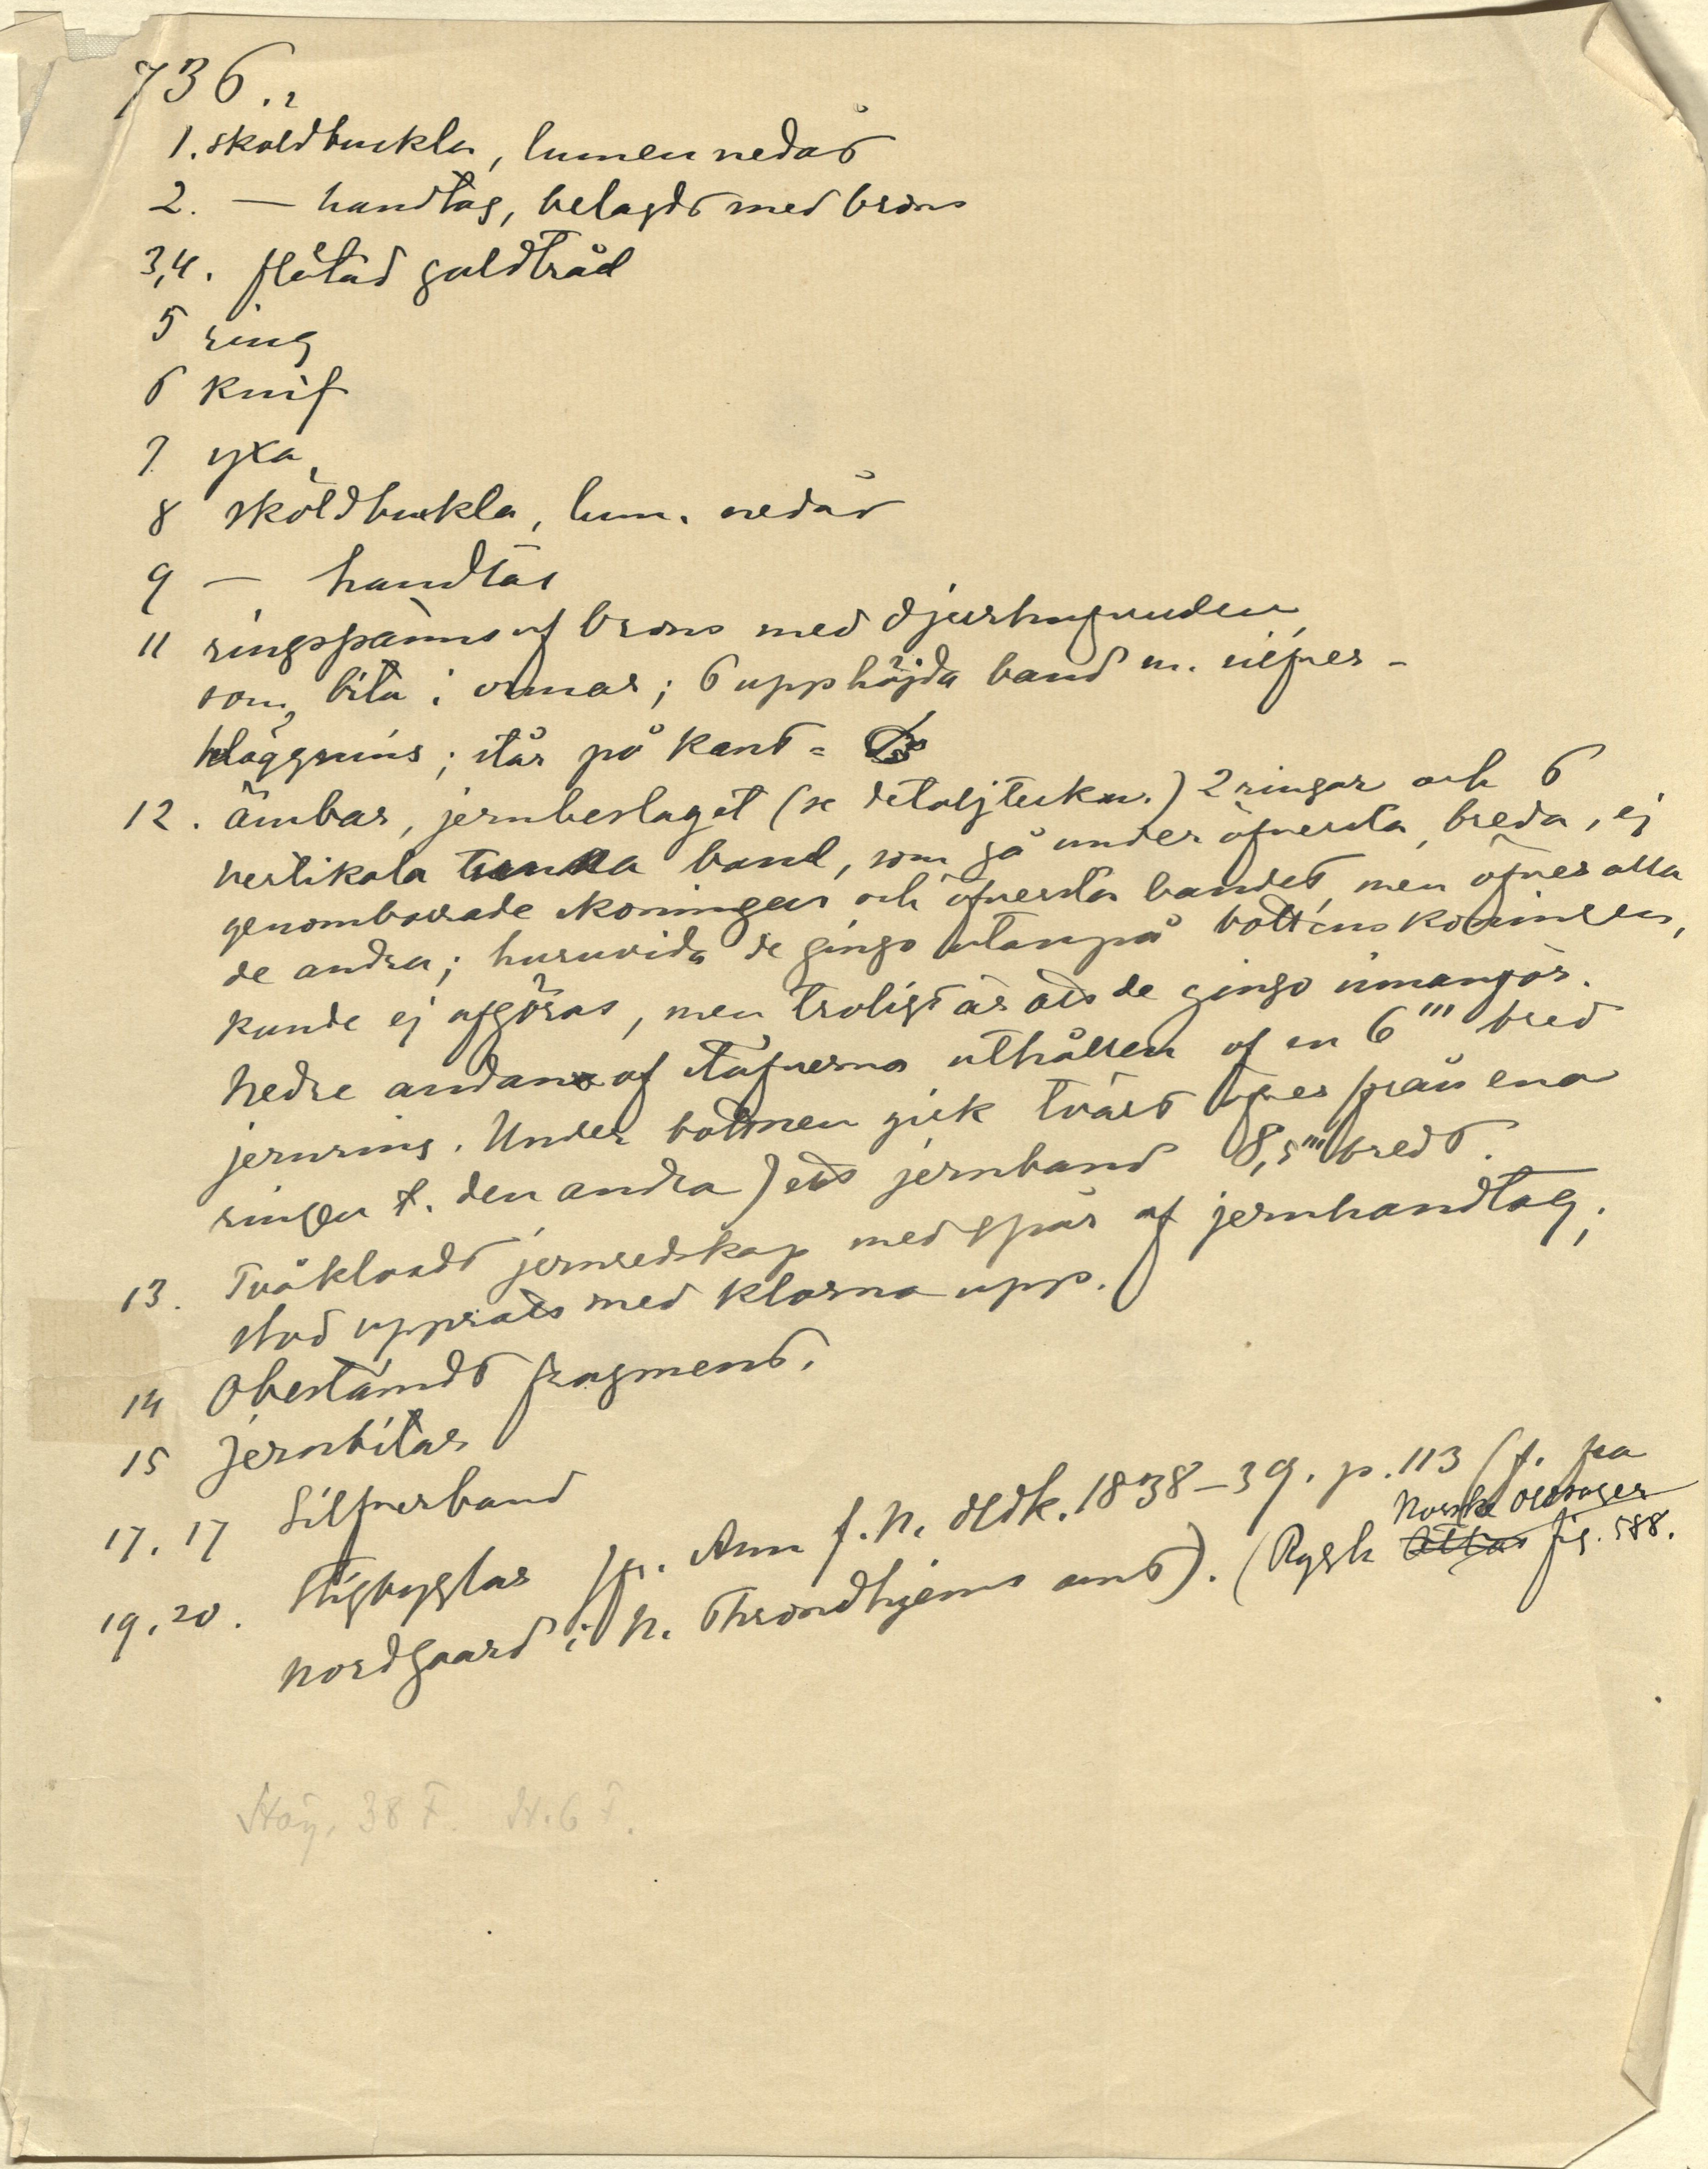 736.
1. sköldbuckla, lumen nedåt
2. — handtag, belagdt med brons
3,4. flätad guldtråd
5 ring
6 knif
7 yxa
8 sköldbuckla, lum. nedåt
9 — handtag
11 ringspänne af brons med djurhufvuden,
som bita i ormar; 6 upphöjda band m. silfver-
beläggning; står på kant =
12. ämbar, jernbeslaget (se detaljteckn.) 2 ringar och 6
vertikala band, som gå under öfversta, breda, ej
genomborrade skoningen och öfversta bandet, men öfver alla
de andra; huruvida de gingo utanpå bottenskoningen,
kunde ej afgöras, men troligt är att de gingo innanför.
Nedre ändan af stäfverna uthållen af en 6''' bred
jernring. Under bottnen gick tvärt öfver från ena
ringen t. den andra) ett jernband 8,5''' bredt.
13. Tvåkloadt jernredskap med spår af jernhandtag;
stod upprätt med klorna upp.
14 Obestämdt fragment.
15 jernbitar
17. 17 Silfverband
19, 20. Stigbyglar jfr. Ann f. N. Oldk. 1838–39. p. 113 (f. fra
Nordgaard i N. Throndhjems amt). (Rygh Norske Oldsager fig. 588.
Hög. 38 F. H. 6 F.